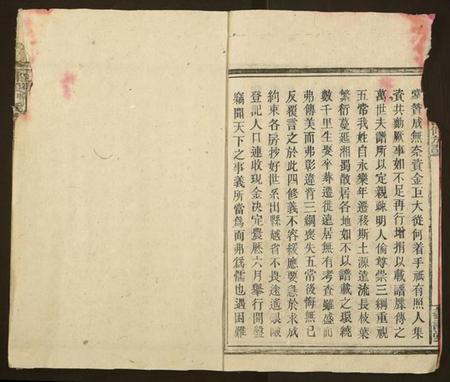 贊成無奈資金巨大從何着手祇有照人集
資共勷厥事如不足再行增捐以載譜牒傳之
萬世夫譜所以定親疎明人倫尊崇三綱重視
五常我姓自永樂年遷移斯土源遠流長枝葉
繁衍蔓延湘蜀散居各地如不以譜載之環繞
數千里生娶卒葬遷徙遠居無有考查雖盛而
弗傳美而弗彰違背三綱喪失五常後悔無已
反覆言之於此四修義不容緩應要急於求成
約束各房抄好世系出縣越省不畏途遙艱
登記人口連收現金決定農厯六月舉行開盤
竊聞天下之事義所當為而弗為儒也遇困難